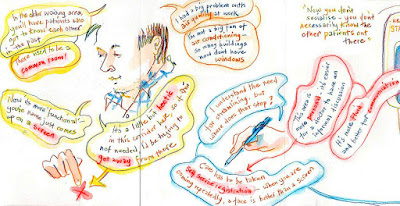 In the older waiting area,
you'll have patients who
got to know each other
- the past
There used to be a
common room!
Now it's more functional -
you're name just comes
up on a screen
I had a big problem with
air conditioning at work
I'm not a big fan of
air-conditioning -
so many buildings
now don't have
windows
It's a little bit hectic
in this corridor here, so if I'm
not needed, I'd be trying to
get away from there
I understand the need
for streamlining, but
where does that stop?
Care has to be taken
self service registration - when you are
coming repeatedly, a face is better than a screen
"Now you don't
socialise - you don't
accessibly
other patients out
there"
This area is
more
of easier
for a body to have an
informal discussion
It's more fluid
and better for communication
STA